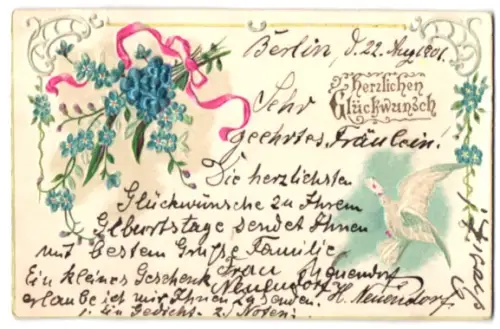 Berlin, d. 22. Aug 1901.
Herzlichen
Glückwunsch
Sehr
geehrtes Fräulein!
Die herzlichsten
Glückwünsche zu Ihrem
Geburtstage sendet Ihnen
mit bestem Grusse Familie
Frau
Neuendorf
Ein kleines Geschenk
H. Neuendorf.
erlaube ich mir Ihnen zu senden.
1. Ein Gedicht. 2. Noten.